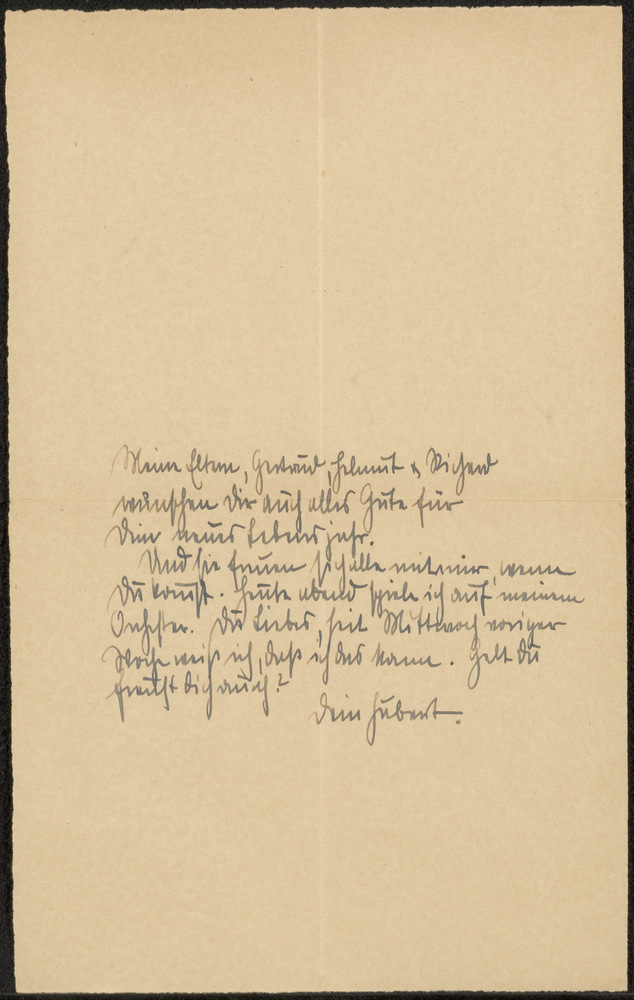 Meine Eltern, Gertrud, Helmut & Richard
wünschen Dir auch alles Gute für
Dein neues Lebensjahr.
Und sie freuen sich alle mit mir, wenn
Du kommst. Heute abend spiele ich auf meinem
Orchester. Du Liebes, seit Mittwoch voriger
Woche weiß ich, daß ich das kann. Gelt Du
freust Dich auch?
Dein Hubert.